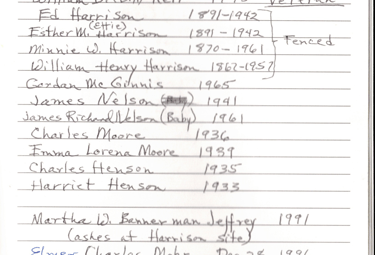 Ed Harrison 1891-1942
(Effie)
Esther M. Harrison 1891-1942
Fenced
Minnie W. Harrison 1870-1961
William Henry Harrison 1862-1957
Gordan Mc Ginnis 1965
James Nelson 1991
James Richard Nelson (Baby) 1961
Charles Moore 1936
Emma Lorena Moore 1989
Charles Henson 1935
Harriet Henson 1933
Martha W. Bannerman Jeffrey 1991
(ashes at Harrison site)
Charles